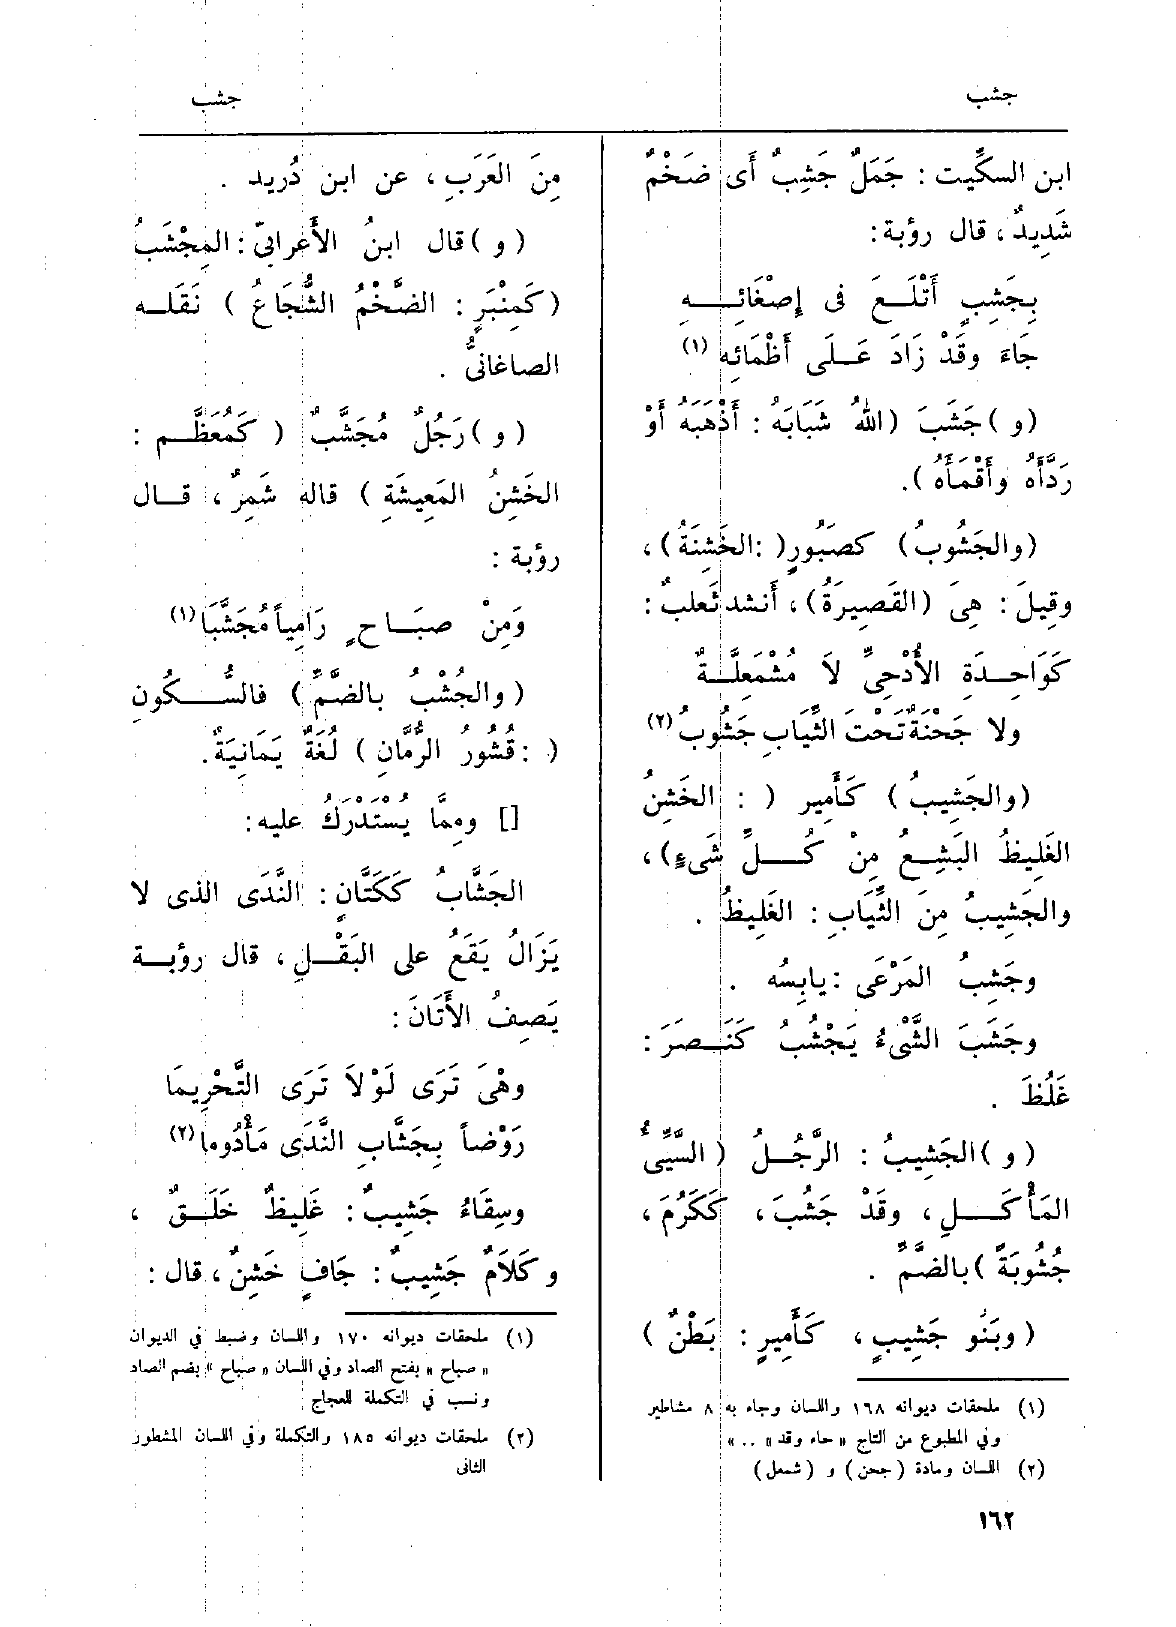 جشب
جشب
ابن السكِّيت : جَمَلٌ جَشِبٌ أَى ضَخْمٌ
شَدِيدٌ ، قال رؤبة :
بِجَشِبٍ أَتْلَعَ فى إِصْغَائِـهِ
جَاءَ وقَدْ زَادَ عَـلَى أَظْمَائِهِ (١)
(و) جَشَبَ (اللهُ شَبَابَهُ : أَذْهَبَهُ أَوْ
رَدَّأَهُ وأَقْمَأَهُ ) .
(والجَشُوبُ) كصَبُورٍ ( : الخَشِنَةُ ) ،
وقِيلَ : هِىَ (القَصِيرَةُ) ، أَنشد ثَعلبٌ :
كَوَاحِدَةِ الأُدْحِىِّ لَا مُشْمَعِلَّـةٌ
ولا جَحْنَةٌ تَحْتَ الثِّيَابِ جَشُوبُ (٢)
(والجَشِيبُ) كَأَمِير ( : الخَشِنُ
الغَلِيظُ البَشِـعُ مِنْ كُـلِّ شَىءٍ) ،
والجَشِيبُ مِنَ الثِّيَابِ : الغَلِيظُ .
وجَشِبُ المَرْعَى : يابِسُه .
وجَشَبَ الشَّىْءُ يَجْشُبُ كَنَـصَرَ :
غَلُظَ .
( و ) الجَشِيبُ : الرَّجُـلُ ( السَّيِّىُّ
المَأْكَـلِ ، وقَدْ جَشُبَ ، كَكَرُمَ ،
جُشُوبَةً ) بالضَّمِّ .
( وبَنُو جَشِيبٍ ، كَأَمِيرٍ : بَطْنٌ )
(١) ملحقات ديوانه ١٦٨ واللسان وجاء به ٨ مشاطير
وفي المطبوع من التاج « حاء وقد » .. »
(٢) اللسان ومادة (جحن) و (شمعل)
١٦٢
مِنَ العَرَبِ ، عن ابن دُريد .
( و ) قال ابنُ الأَعرابىّ : المِجْشَبُ
(كَمِنْبَرٍ : الضَّخْمُ الشُّجَاعُ ) نَقَلـه
الصاغانىُّ .
( و ) رَجُلٌ مُجَشَّبٌ ( كَمُعَظَّـم :
الخَشِنُ المَعِيشَةِ ) قاله شَمِرٌ ، قـال
رؤبة :
وَمِنْ صبَـاحٍ رَامِياً مُجَشَّبَا (١)
( والجُشْبُ بالضَّمِّ ) فالسُّـكُونِ
( : قُشُورُ الرُّمَّانِ ) لُغَةٌ يَمَانِيَةٌ .
[] ومِمَّا يُسْتَدْرَكُ عليه :
الجَشَّابُ كَكَتَّانٍ : النَّدَى الذى لا
يَزَالُ يَقَعُ على البَقْـلِ ، قال رؤبـة
يَصِفُ الأَتَانَ :
وهْىَ تَرَى لَوْلَا تَرَى التَّحْرِيمَا
رَوْضاً بِجَشَّابِ النَّدَى مَأْدُوما (٢)
وسِقَاءٌ جَشِيبٌ : غَلِيظٌ خَلَـقٌ ،
وكَلَامٌ جَشِيبٌ : جَافٍ خَشِنٌ ، قال :
(١) ملحقات ديوانه ١٧٠ واللسان وضبط في الديوان
« صباح » بفتح الصاد وفي اللسان « صباح » بضم الصاد
ونسب في التكملة للعجاج
(٢) ملحقات ديوانه ١٨٥ والتكملة وفي اللسان المشطور
الثانى